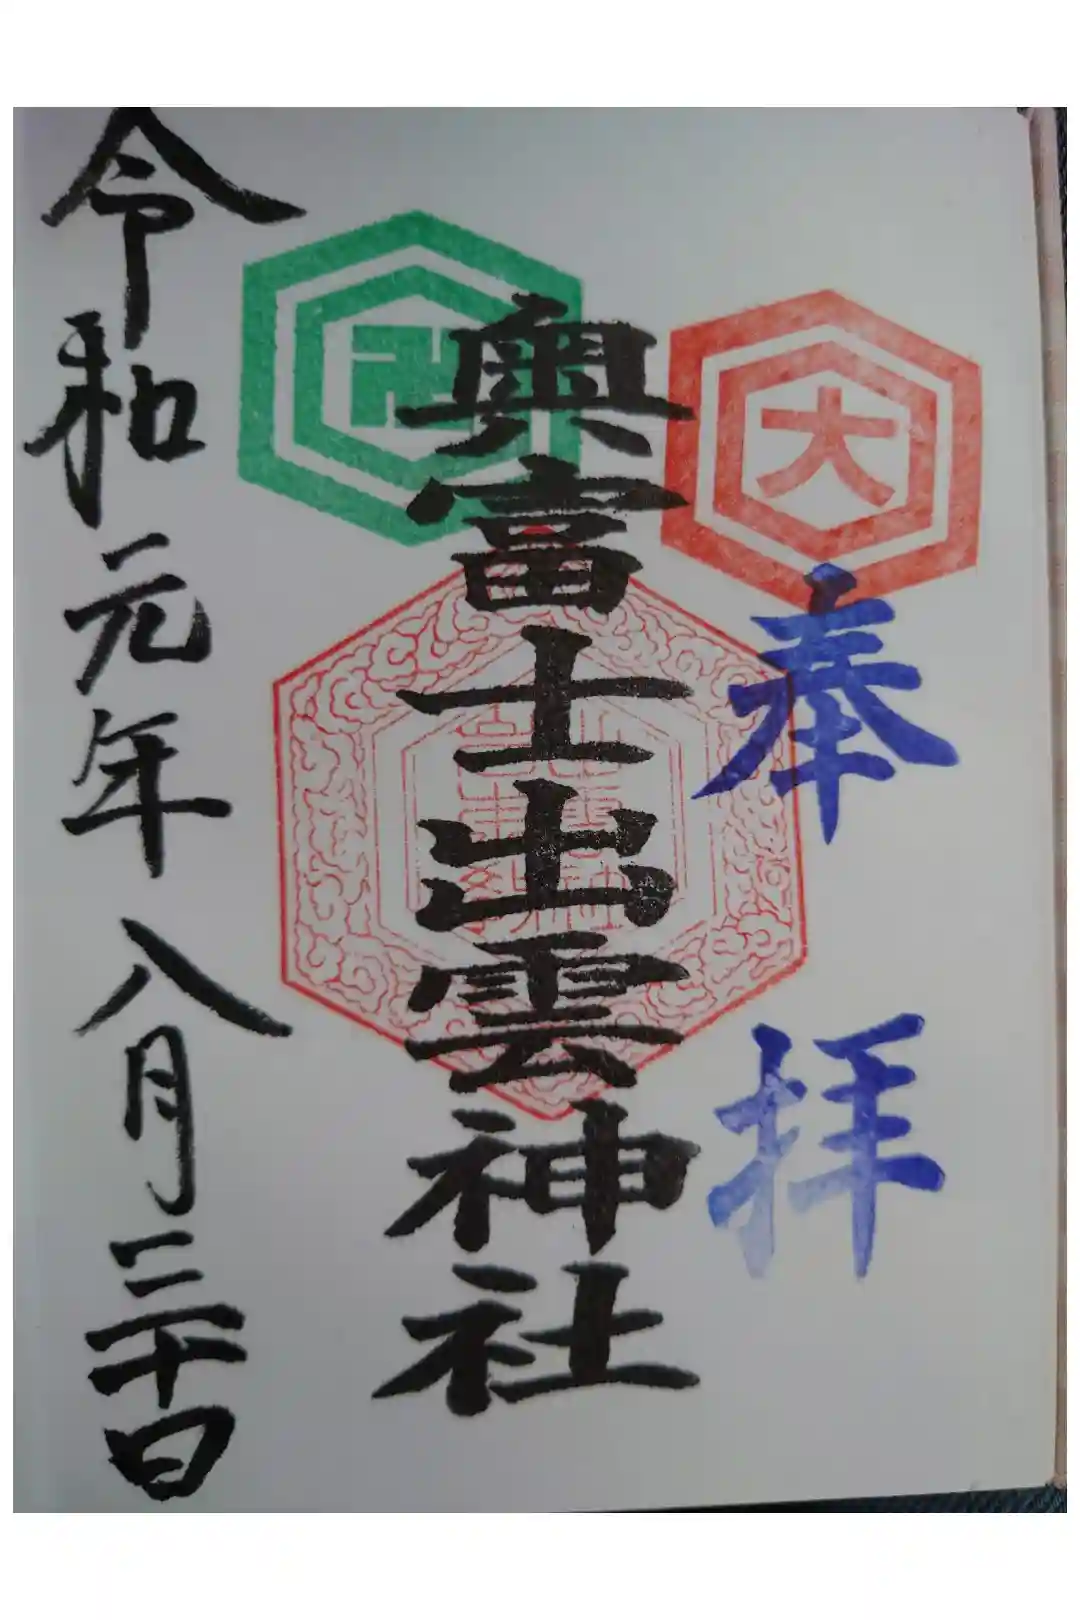 大
奉拝
奥富士出雲神社
令和元年八月三十日